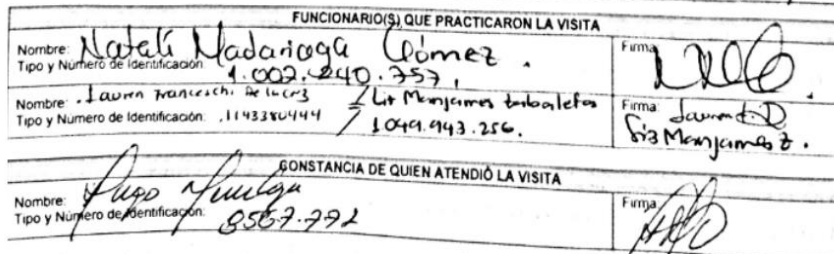 FUNCIONARIO(S) QUE PRACTICARON LA VISITA
Nombre: Natali Madariaga Gómez. Firma
Tipo y Número de Identificación: 1.002.240.757.
Nombre: Lauren Franceschi De la cruz / Liz Manjarres Firma: Lauren F. D
Tipo y Número de Identificación: 1143380444 / 1049.943.256. Liz Manjarres
CONSTANCIA DE QUIEN ATENDIÓ LA VISITA
Nombre: Hugo Firma
Tipo y Número de Identificación: 8567.772